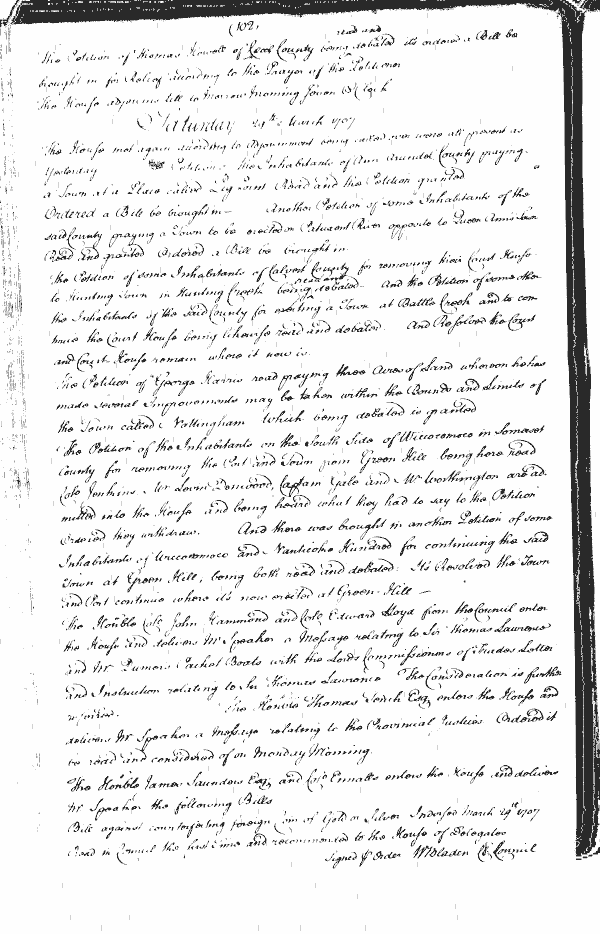 (102)
read and
The Petition of Thomas Howell of Cecil County being debated its ordered a Bill be
brought in for Relief according to the Prayer of the Petitioner
The House adjourns till to Morrow Morning Seven O Clock
Saturday 29th March 1707
The House met again according to Adjournment being called over were all present as
Yesterday Petition the Inhabitants of Ann Arundel County praying
a Town at a Place called Read and the Petition granted
Ordered a Bill be brought in Another Petition of some Inhabitants of the
said County praying a Town to be erected on Patuxent River opposite to Queen Anns Town
Read and granted Ordered a Bill be brought in
The Petition of some Inhabitants of Calvert County for removing their Court House
to Hunting Town in Hunting Creek being read and debated And the Petition of some other
the Inhabitants of the said County for erecting a Town at Battle Creek and to con
tinue the Court House being likewise read and debated And Resolved the Court
and Court House remain where it now is
The Petition of George Harris read praying three Acres of Land whereon he has
made several Improvements may be taken within the Bounds and Limits of
the Town called Nottingham Which being debated is granted
The Petition of the Inhabitants on the South Side of Wiccocomoco in Somerset
County for removing the Port and Town from Green Hill being here read
Colo Jenkins Mr Levin Denwood, Captain Gale and Mr Worthington are ad
mitted into the House and being heard what they had to say to the Petition
Ordered they withdraw. And there was brought in another Petition of some
Inhabitants of Wiccocomoco and Nanticoke Hundred for continuing the said
Town at Green Hill, being both read and debated Its Resolved the Town
and Port continue where its now erected at Green Hill
The Honble Colo John Hammond and Colo Edward Lloyd from the Council enter
the House and delivers Mr Speaker a Message relating to Sir Thomas Lawrence
and Mr Dumers Packet Boats with the Lords Commissioners of Trades Letter
and Instruction relating to Sir Thomas Lawrence The Consideration is further
referred. The Honble Thomas Tench Esqr enters the House and
delivers Mr Speaker a Message relating to the Provincial Justices Ordered it
be read and considered of on Monday Morning.
The Honble James Saunders Esqr and Colo Ennalls enters the House and delivers
Mr Speaker the following Bills
Bill against counterfeiting foreign Coin of Gold or Silver Indorsed March 29th 1707
Read in Council the first time and recommended to the House of Delegates
Signed P Order W Bladen Cl Council